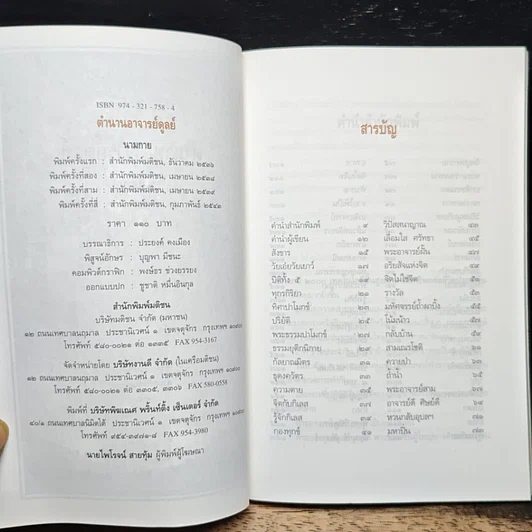 ISBN 974 - 321 - 758 - 4
ตำนานอาจารย์ดูลย์
นามกาย
พิมพ์ครั้งแรก : สำนักพิมพ์มติชน, ธันวาคม ๒๕๓๖
พิมพ์ครั้งที่สอง : สำนักพิมพ์มติชน, เมษายน ๒๕๓๘
พิมพ์ครั้งที่สาม : สำนักพิมพ์มติชน, เมษายน ๒๕๓๙
พิมพ์ครั้งที่สี่ : สำนักพิมพ์มติชน, กุมภาพันธ์
ราคา ๑๑๐ บาท
บรรณาธิการ : ประยงค์ คงเมือง
พิสูจน์อักษร : บุญพา มีชนะ
คอมพิวเต็กราฟิก : พงษ์อร ช่วงอรรยง
ออกแบบปก : ชูชาติ หมื่นอินกุล
สำนักพิมพ์มติชน
บริษัทมติชน จำกัด (มหาชน)
๑๒ ถนนเทศบาลนฤมาล ประชานิเวศน์ ๑ เขตจตุจักร กรุงเทพฯ
โทรศัพท์ ๕๘๐-๐๐๒๑ ต่อ FAX 954-3167
จัดจำหน่ายโดย บริษัทงานดี จำกัด (ในเครือมติชน)
๑๒ ถนนเทศบาลนฤมาล ประชานิเวศน์ ๑ เขตจตุจักร กรุงเทพฯ
โทรศัพท์ ๕๘๐-๐๐๒๑ ต่อ ๓๓๐๕, ๓๓๐๖ FAX 580-0558
พิมพ์ที่ บริษัทพิฆเณศ พริ้นท์ติ้ง เซ็นเตอร์ จำกัด
ถนนเทศบาลนิมิตใต้ ประชานิเวศน์ ๑ เขตจตุจักร กรุงเทพฯ
โทรศัพท์ FAX 954-3980
นายไพโรจน์ สายหุ้ม ผู้พิมพ์ผู้โฆษณา
สารบัญ
คำนำสำนักพิมพ์ ๗ วิปัสสนาญาณ ๔๓
คำนำผู้เขียน ๑๒ เลื่อมใส ศรัทธา ๔๕
สังขาร ๑๕ พระอาจารย์ฝั้น ๔๗
วัยเอ๋ยวัยเยาว์ ๑๗ อริยสัจแห่งจิต ๔๙
ปีติทั้ง ๕ ๑๙ จิตไม่ใช่จิต ๕๑
ทุกรกิริยา ๒๑ รางวัล ๕๓
ทิศาปาโมกข์ ๒๓ มหัศจรรย์ถ้ำผาบิ้ง ๕๕
ปริยัติ ๒๕ โน้มน้าว ๕๗
พระธรรมปาโมกข์ ๒๗ กลับบ้าน ๕๙
ธรรมยุติกนิกาย ๒๙ สามเณรโชติ ๖๑
กัลยาณมิตร ๓๑ ควายป่า ๖๓
ธุดงควัตร ๓๓ ถ้ำน้ำ ๖๕
ความตาย ๓๕ พระอาจารย์สาม ๖๗
จิตกับกิเลส ๓๗ อาจารย์ดี ศิษย์ดี ๖๙
รู้จักกิเลส ๓๙ หวนกลับอุบลฯ ๗๑
กองทุกข์ ๔๑ มหาปิ่น ๗๓